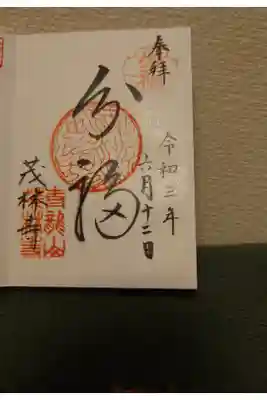 奉拝
令和三年
六月十二日
分福
茂林寺
青龍山